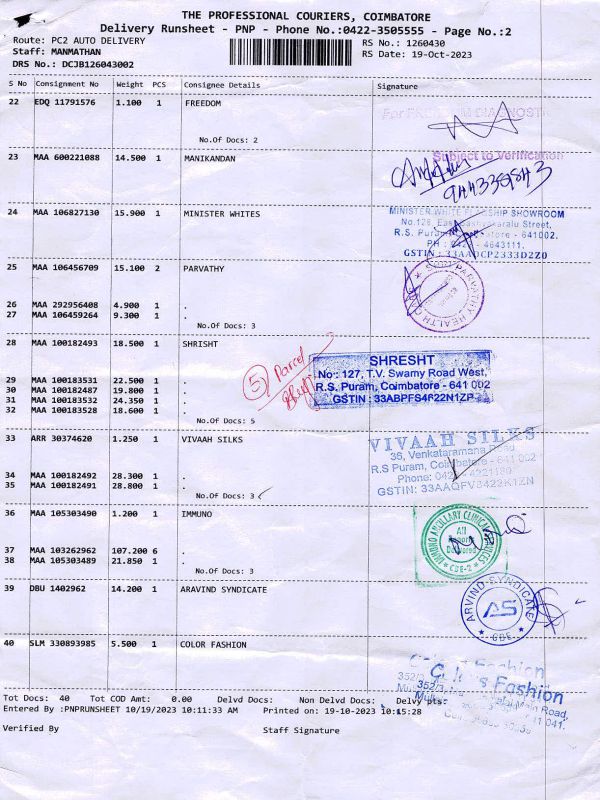 THE PROFESSIONAL COURIERS, COIMBATORE
Delivery Runsheet - PNP - Phone No.:0422-3505555 - Page No.:2
Route: PC2 AUTO DELIVERY
RS No.: 1260430
Staff: MANMATHAN
RS Date: 19-Oct-2023
DRS No.: DCJB126043002
S No Consignment No Weight PCS Consignee Details Signature
22 EDQ 11791576 1.100 1 FREEDOM
No.Of Docs: 2
23 MAA 600221088 14.500 1 MANIKANDAN
Subject to Verification
24 MAA 106827130 15.900 1 MINISTER WHITES
MINISTER WHITE FLAGSHIP SHOWROOM
No.128, East Street,
R.S. Puram, Coimbatore - 641002.
PH : 0422 - 4643111,
GSTIN : 33AADCP2333D2Z0
25 MAA 106456709 15.100 2 PARVATHY
26 MAA 292956408 4.900 1 .
27 MAA 106459264 9.300 1 .
No.Of Docs: 3
28 MAA 100182493 18.500 1 SHRISHT
5 Parcel
SHRESHT
No: 127, T.V. Swamy Road West,
R.S. Puram, Coimbatore - 641 002
GSTIN : 33ABPFS4622N1ZP
29 MAA 100183531 22.500 1 .
30 MAA 100182487 19.800 1 .
31 MAA 100183532 24.350 1 .
32 MAA 100183528 18.600 1 .
No.Of Docs: 5
33 ARR 30374620 1.250 1 VIVAAH SILKS
VIVAAH SILKS
36, Venkataramana Road
R.S Puram, Coimbatore - 641 002
Phone: 0422
34 MAA 100182492 28.300 1 .
35 MAA 100182491 28.800 1 .
No.Of Docs: 3
36 MAA 105303490 1.200 1 IMMUNO
All Reports Delivered
CBE-2
37 MAA 103262962 107.200 6 .
38 MAA 105303489 21.850 1 .
No.Of Docs: 3
39 DBU 1402962 14.200 1 ARAVIND SYNDICATE
ARVIND SYNDICATE
AS
CBE
40 SLM 330893985 5.500 1 COLOR FASHION
Fashion
352/3,
Main Road,
Tot Docs: 40 Tot COD Amt: 0.00 Delvd Docs: Non Delvd Docs: Delvy pts:
Entered By :PNPRUNSHEET 10/19/2023 10:11:33 AM Printed on: 19-10-2023 10:15:28
Verified By Staff Signature